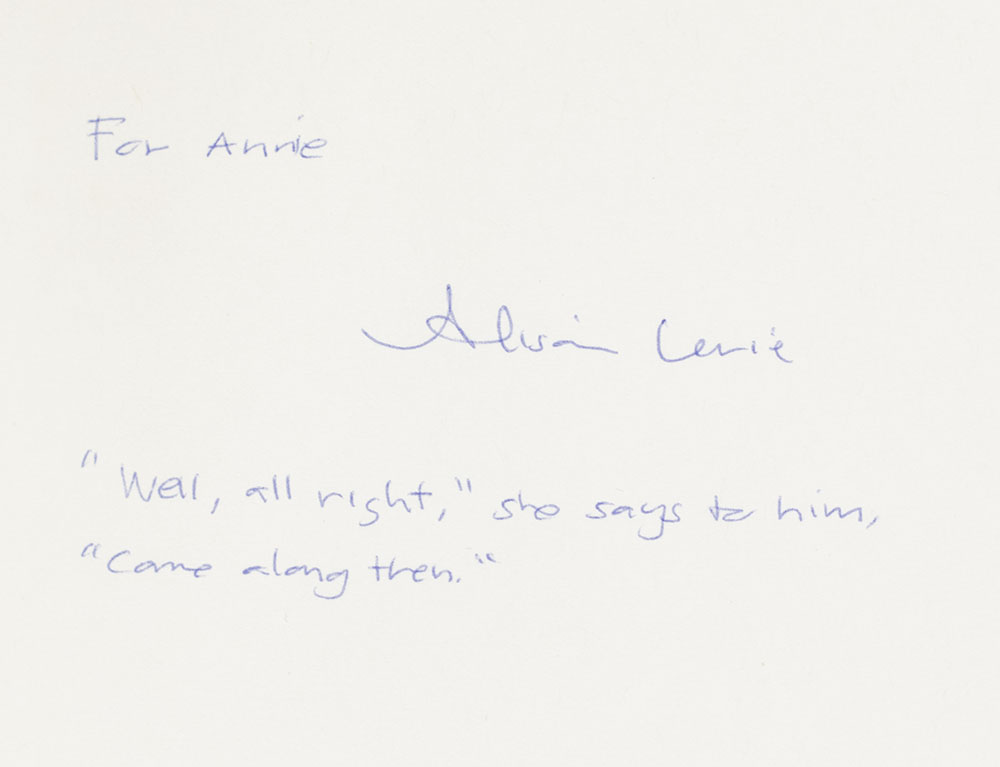 For Annie
Alison Lurie
"Well, all right," she says to him,
"Come along then."